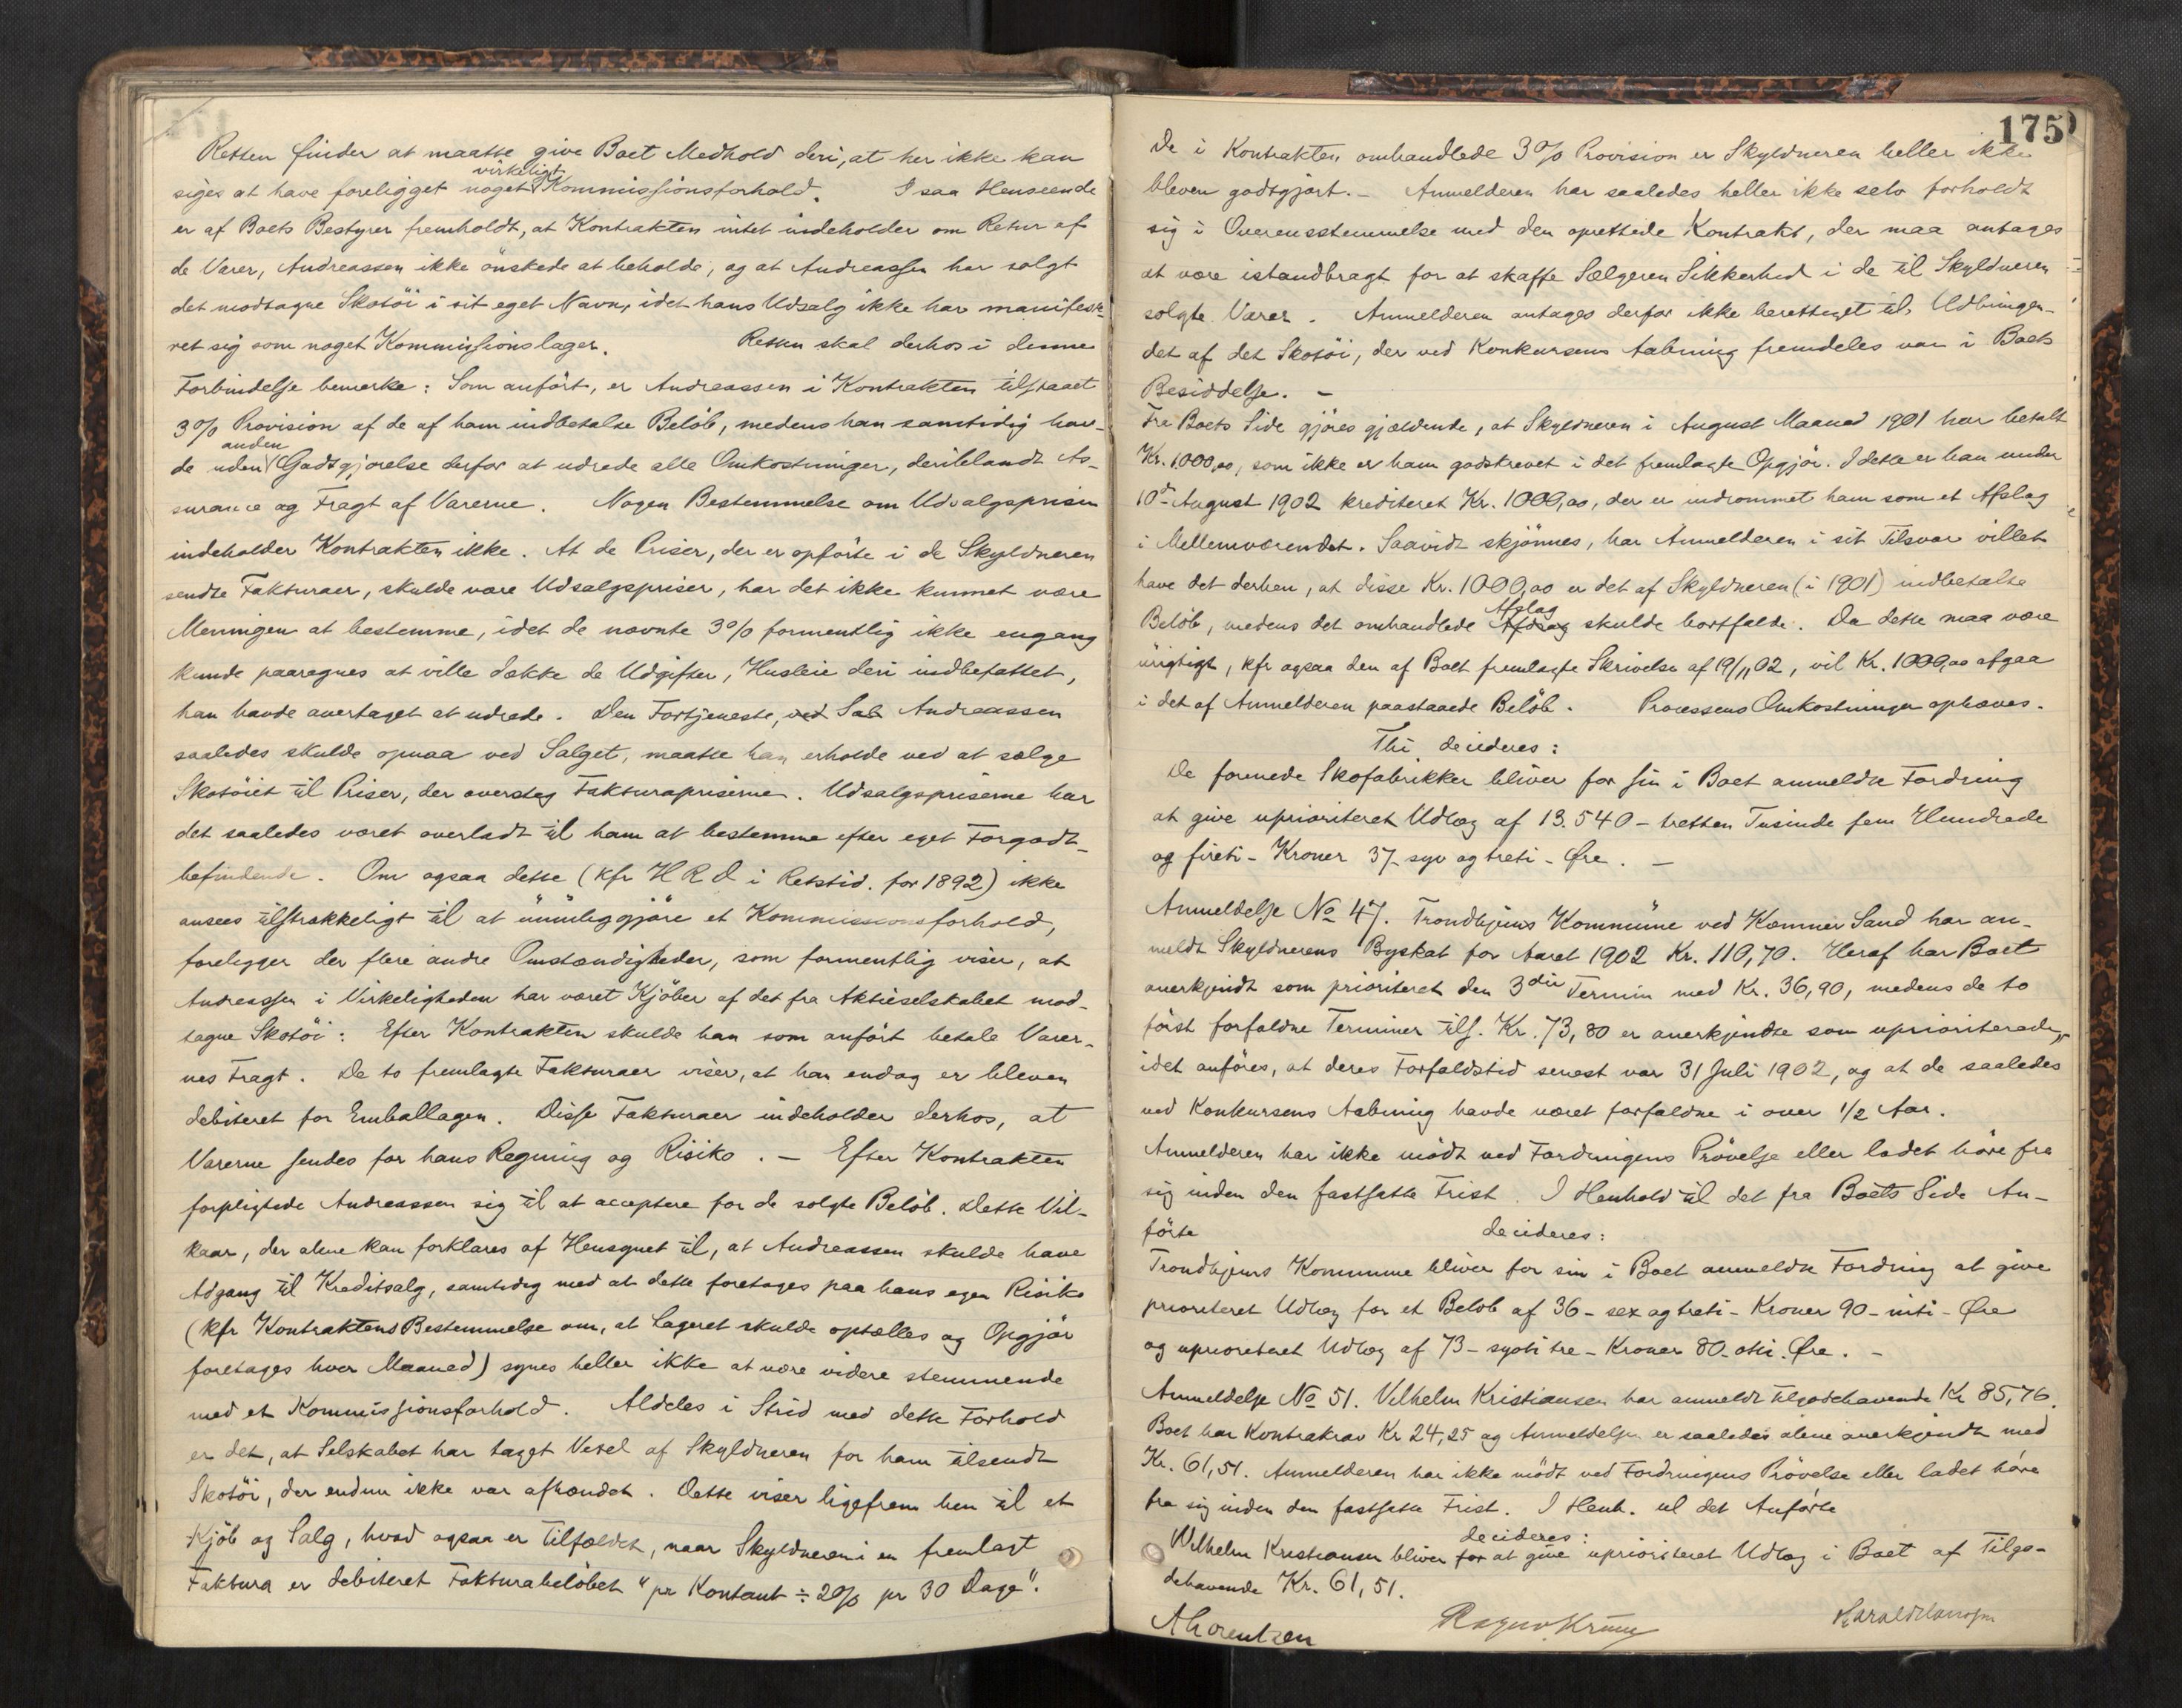 Retten finder at maatte give Boet Medhold deri, at her ikke kan
siges at have foreligget noget virkeligt Kommissionsforhold. I saa Henseende
er af Boets Bestyrer fremholdt, at Kontrakten intet indeholder om Retur af
de Varer, Andreassen ikke önskede at beholde, og at Andreassen har solgt
det modtagne Skotöi i sit eget Navn, idet hans Udsalg ikke har manifeste-
ret sig som noget Kommissionslager. Retten skal derhos i denne
Forbindelse bemerke: Som anfört, er Andreassen i Kontrakten tilstaaet
3% Provision af de af ham indbetalte Belöb, medens han samtidig hav-
de uden anden Godtgjorelse derfor at udrede alle Omkostninger, deriblandt As-
surance og Fragt af Varerne. Nogen Bestemmelse om Udsalgsprisen
indeholder Kontrakten ikke. At de Priser, der er opförte i de Skyldneren
sendte Fakturaer, skulde være Udsalgspriser, har det ikke kunnet være
Meningen at bestemme, idet de nævnte 3% formentlig ikke engang
kunde paaregnes at ville dække de Udgifter, Husleie deri indbefattet,
han havde overtaget at udrede. Den Fortjeneste, ved Sal Andreassen
saaledes skulde opnaa ved Salget, maatte han erholde ved at sælge
Skotöiet til Priser, der oversteg Fakturapriserne. Udsalgspriserne har
det saaledes været overladt til ham at bestemme efter eget Forgodt-
befindende. Om ogsaa dette (kfr H R D i Retstid. for 1892) ikke
ansees tilstrækkeligt til at umuliggjöre et Kommissionsforhold,
foreligger der flere andre Omstændigheder, som formentlig viser, at
Andreassen i Virkeligheden har været Kjöber af det fra Aktieselskabet mod-
tagne Skotöi: Efter Kontrakten skulde han som anfört betale Varer-
nes Fragt. De to fremlagte Fakturaer viser, at han endog er bleven
debiteret for Emballagen. Disse Fakturaer indeholder derhos, at
Varerne sendes for hans Regning og Risiko. — Efter Kontrakten
forpligtede Andreassen sig til at acceptere for de solgte Belöb. Dette Vil-
kaar, der alene kan forklares af Hensynet til, at Andreassen skulde have
Adgang til Kreditsalg, samtidig med at dette foretages paa hans egen Risiko
(kfr Kontraktens Bestemmelse om, at Lageret skulde optælles og Opgjör
foretages hver Maaned) synes heller ikke at være videre stemmende
med et Kommissionsforhold. Aldeles i Strid med dette Forhold
er det, at Selskabet har taget Vexel af Skyldneren for ham tilsendt
Skotöi, der endnu ikke var afhændet. Dette viser ligefrem hen til et
Kjöb og Salg, hvad ogsaa er Tilfældet, naar Skyldneren i en fremlagt
Faktura er debiteret Fakturabelöbet "pr Kontant ÷ 2% pr 30 Dage".
175
De i Kontrakten omhandlede 3% Provision er Skyldneren heller ikke
bleven godtgjort. — Anmelderen har saaledes heller ikke selv forholdt
sig i Overensstemmelse med den oprettede Kontrakt, der maa antages
at være istandbragt for at skaffe Sælgeren Sikkerhed i de til Skyldneren
solgte Varer. Anmelderen antages derfor ikke berettiget til Udbringen-
det af det Skotöi, der ved Konkursens Aabning fremdeles var i Boets
Besiddelse. —
Fra Boets Side gjöres gjældende, at Skyldneren i August Maaned 1901 har betalt
Kr. 1000,00, som ikke er ham godskrevet i det fremlagte Opgjör. I dette er han under
10de August 1902 krediteret Kr. 1000,00, der er indrommet ham som et Afslag
i Mellemværendet. Saavidt skjönnes, har Anmelderen i sit Tilsvar villet
have det derhen, at disse Kr. 1000,00 er det af Skyldneren (i 1901) indbetalte
Belöb, medens det omhandlede Afdrag Afslag skulde bortfalde. Da dette maa være
urigtigt, kfr ogsaa den af Boet fremlagte Skrivelse af 19/11 02, vil Kr. 1000,00 afgaa
i det af Anmelderen paastaaede Belöb. Processens Omkostninger ophæves.
Thi decideres:
De forenede Skofabrikker bliver for sin i Boet anmeldte Fordring
at give uprioriteret Udlæg af 13.540 - tretten Tusinde fem Hundrede
og fireti - Kroner 37 - syv og treti - Øre. —
Anmeldelse No 47. Trondhjems Kommune ved Kæmner Sand har an-
meldt Skyldnerens Byskat for Aaret 1902 Kr. 110,70. Heraf har Boet
anerkjendt som prioriteret den 3die Termin med Kr. 36,90, medens de to
först forfaldne Terminer tils. Kr. 73,80 er anerkjendte som uprioriterede,
idet anföres, at deres Forfaldstid senest var 31 Juli 1902, og at de saaledes
ved Konkursens Aabning havde været forfaldne i over 1/2 Aar.
Anmelderen har ikke mödt ved Fordringens Prövelse eller ladet höre fra
sig inden den fastsatte Frist. I Henhold til det fra Boets Side An-
förte decideres:
Trondhjems Kommune bliver for sin i Boet anmeldte Fordring at give
prioriteret Udlæg for et Belöb af 36 - sex og treti - Kroner 90 - niti - Øre
og uprioriteret Udlæg af 73 - sytti tre - Kroner 80 - otti - Øre. —
Anmeldelse No 51. Vilhelm Kristiansen har anmeldt Tilgodehavende Kr 85,76.
Boet har Kontrakrav Kr 24,25 og Anmeldelsen er saaledes alene anerkjendt med
Kr. 61,51. Anmelderen har ikke mödt ved Fordringens Prövelse eller ladet höre
fra sig inden den fastsatte Frist. I Henh. til det Anförte
decideres:
Vilhelm Kristiansen bliver for at give uprioriteret Udlæg i Boet af Tilgo-
dehavende Kr. 61,51.
A Lorentzen